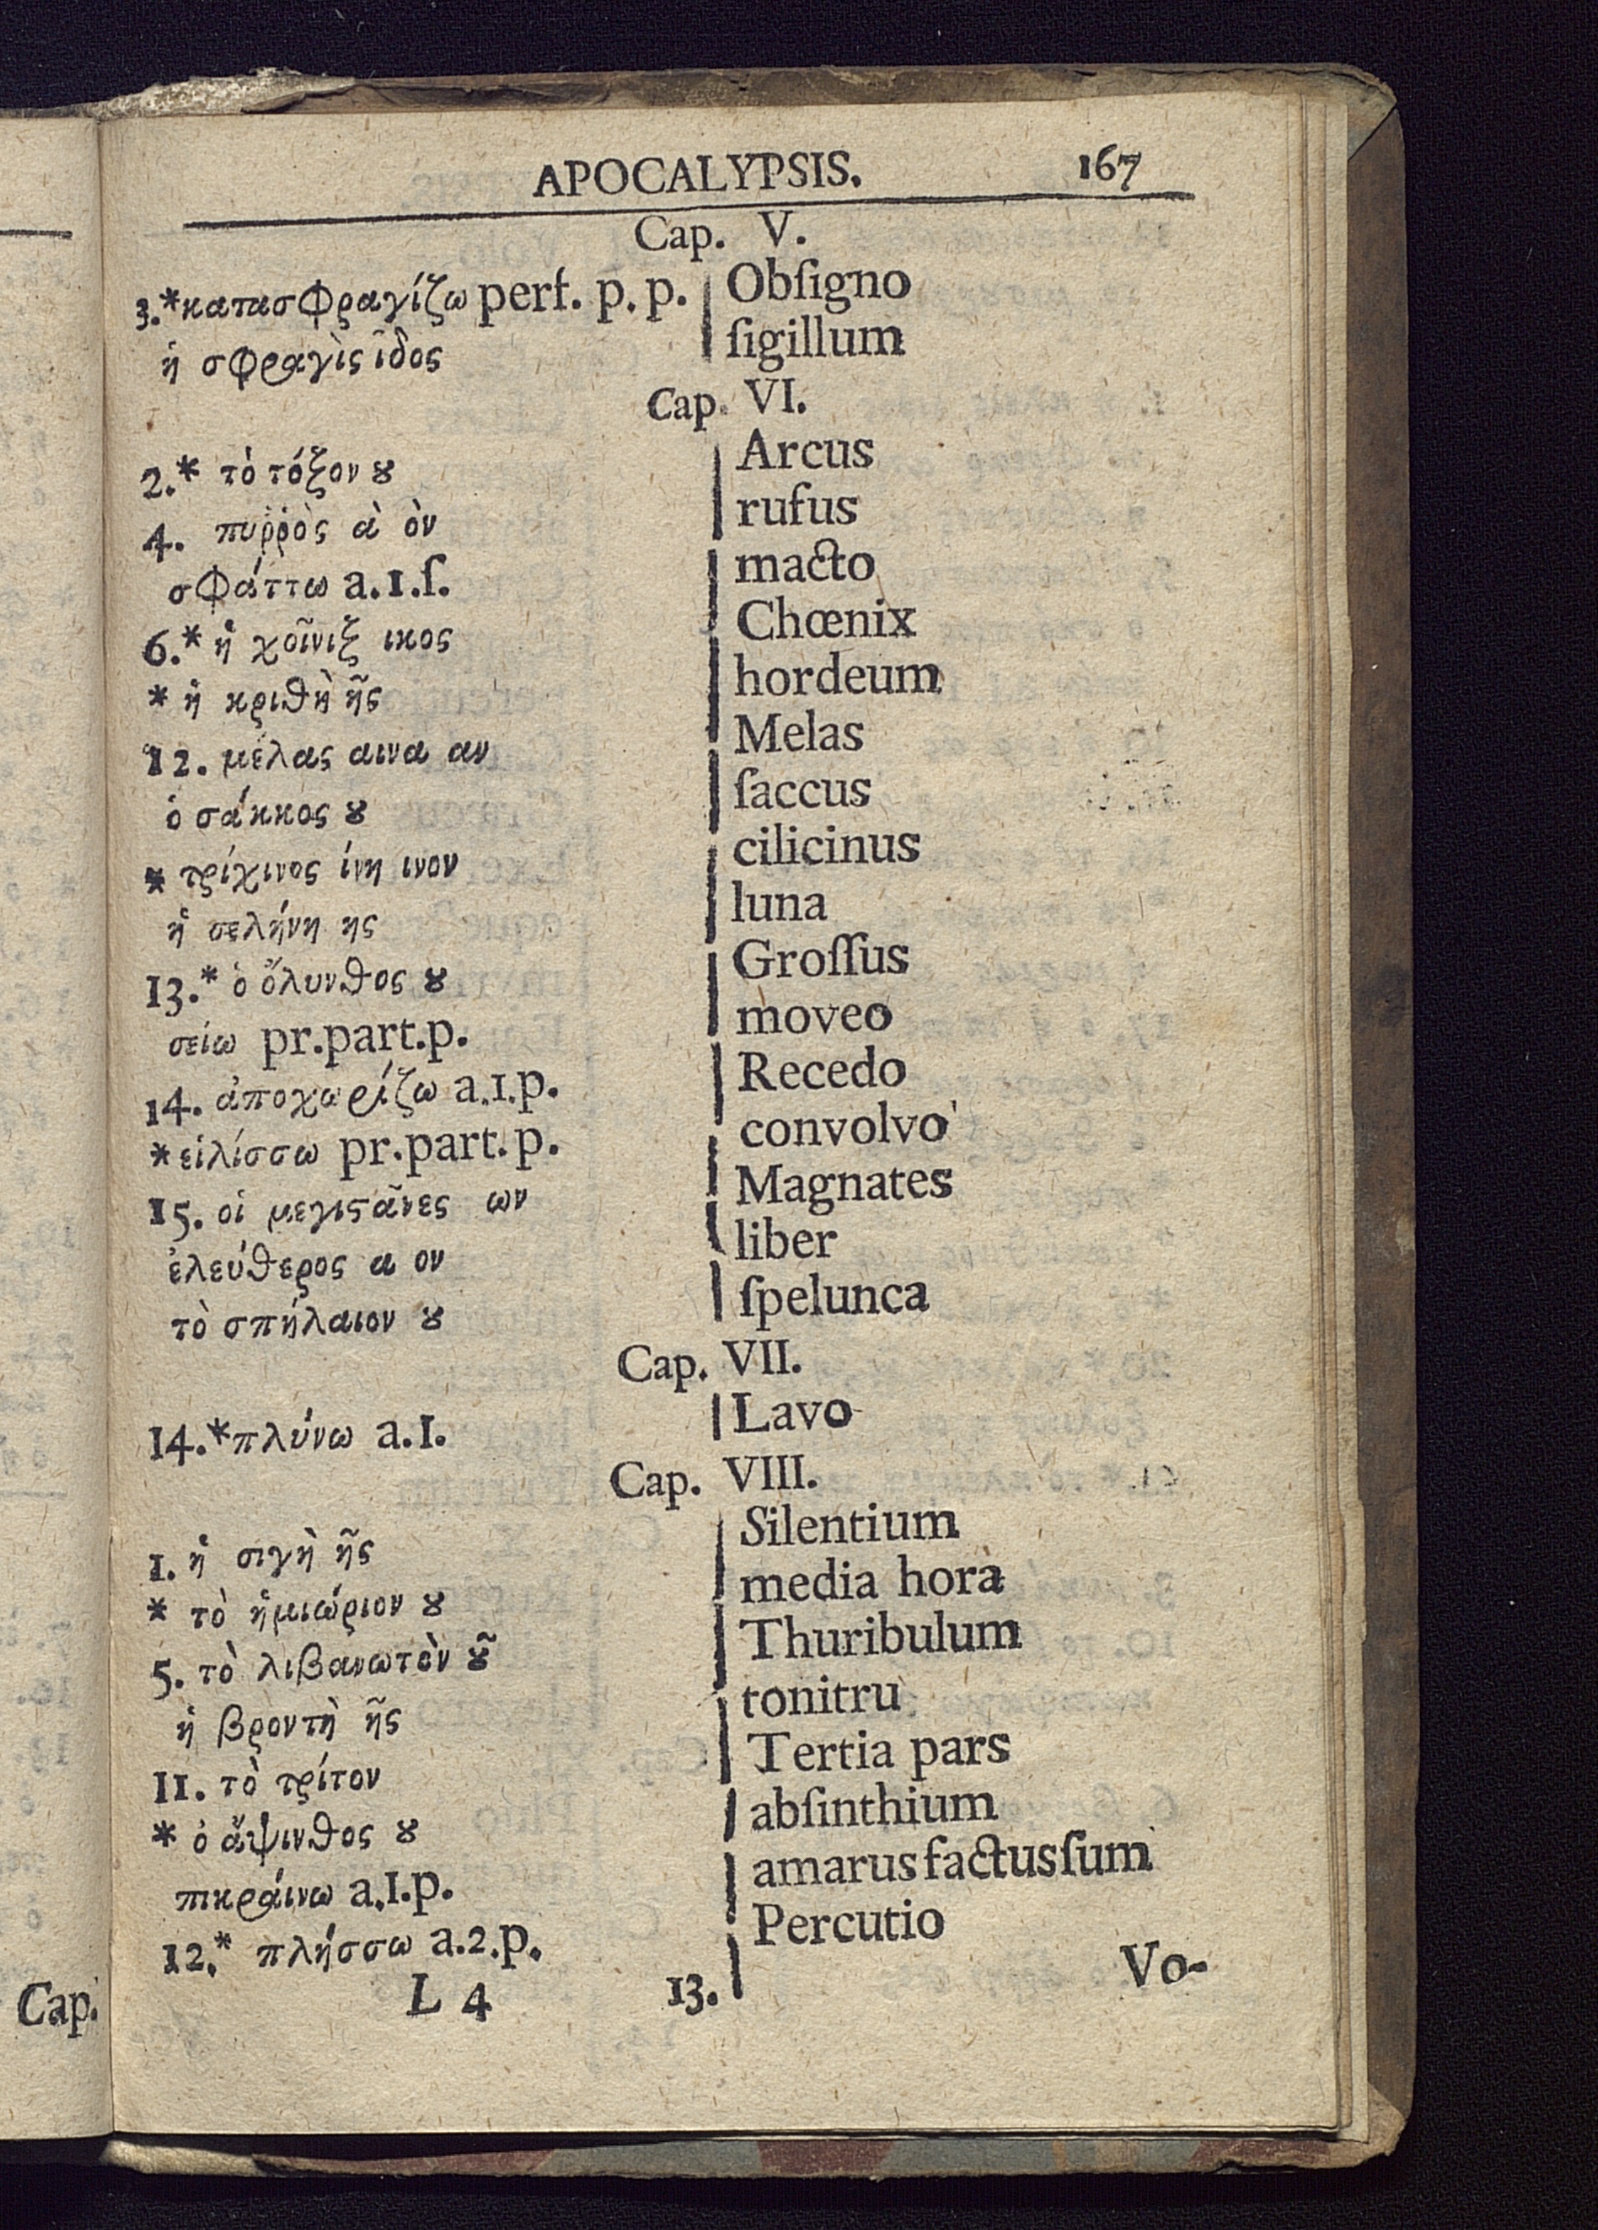 APOCALYPSIS. 167
Cap. V.
3.*κατασφραγίζω perf. p. p. Obſigno
ἡ σφραγὶς ῖδος ſigillum
Cap. VI.
2.* τὸ τόξον ȣ Arcus
4. πυῤῥὸς ὰ ὸν rufus
σφάττω a.1.ſ. macto
6.* ἡ χοῖνιξ ικος Chœnix
* ἡ κριθὴ ῆς hordeum
12. μέλας αινα αν Melas
ὁ σάκκος ȣ ſaccus
* τρίχινος ίνη ινον cilicinus
ἡ σελήνη ης luna
13.* ὁ ὄλυνθος ȣ Groſſus
σείω pr.part.p. moveo
14. ἀποχωρίζω a.1.p. Recedo
*εἱλίσσω pr.part.p. convolvo
15. οἱ μεγιϛᾶνες ων Magnates
ἐλεύθερος α ον liber
τὸ σπήλαιον ȣ ſpelunca
Cap. VII.
14.*πλύνω a.1. Lavo
Cap. VIII.
1. ἡ σιγὴ ῆς Silentium
* τὸ ἡμιώριον ȣ media hora
5. τὸ λιβανωτὸν ȣ͂ Thuribulum
ἡ βροντὴ ῆς tonitru
11. τὸ τρίτον Tertia pars
* ὁ ἄψινθος ȣ abſinthium
πικραίνω a.1.p. amarus factus ſum
12.* πλήσσω a.2.p. Percutio
L 4 13. Vo-
Cap.